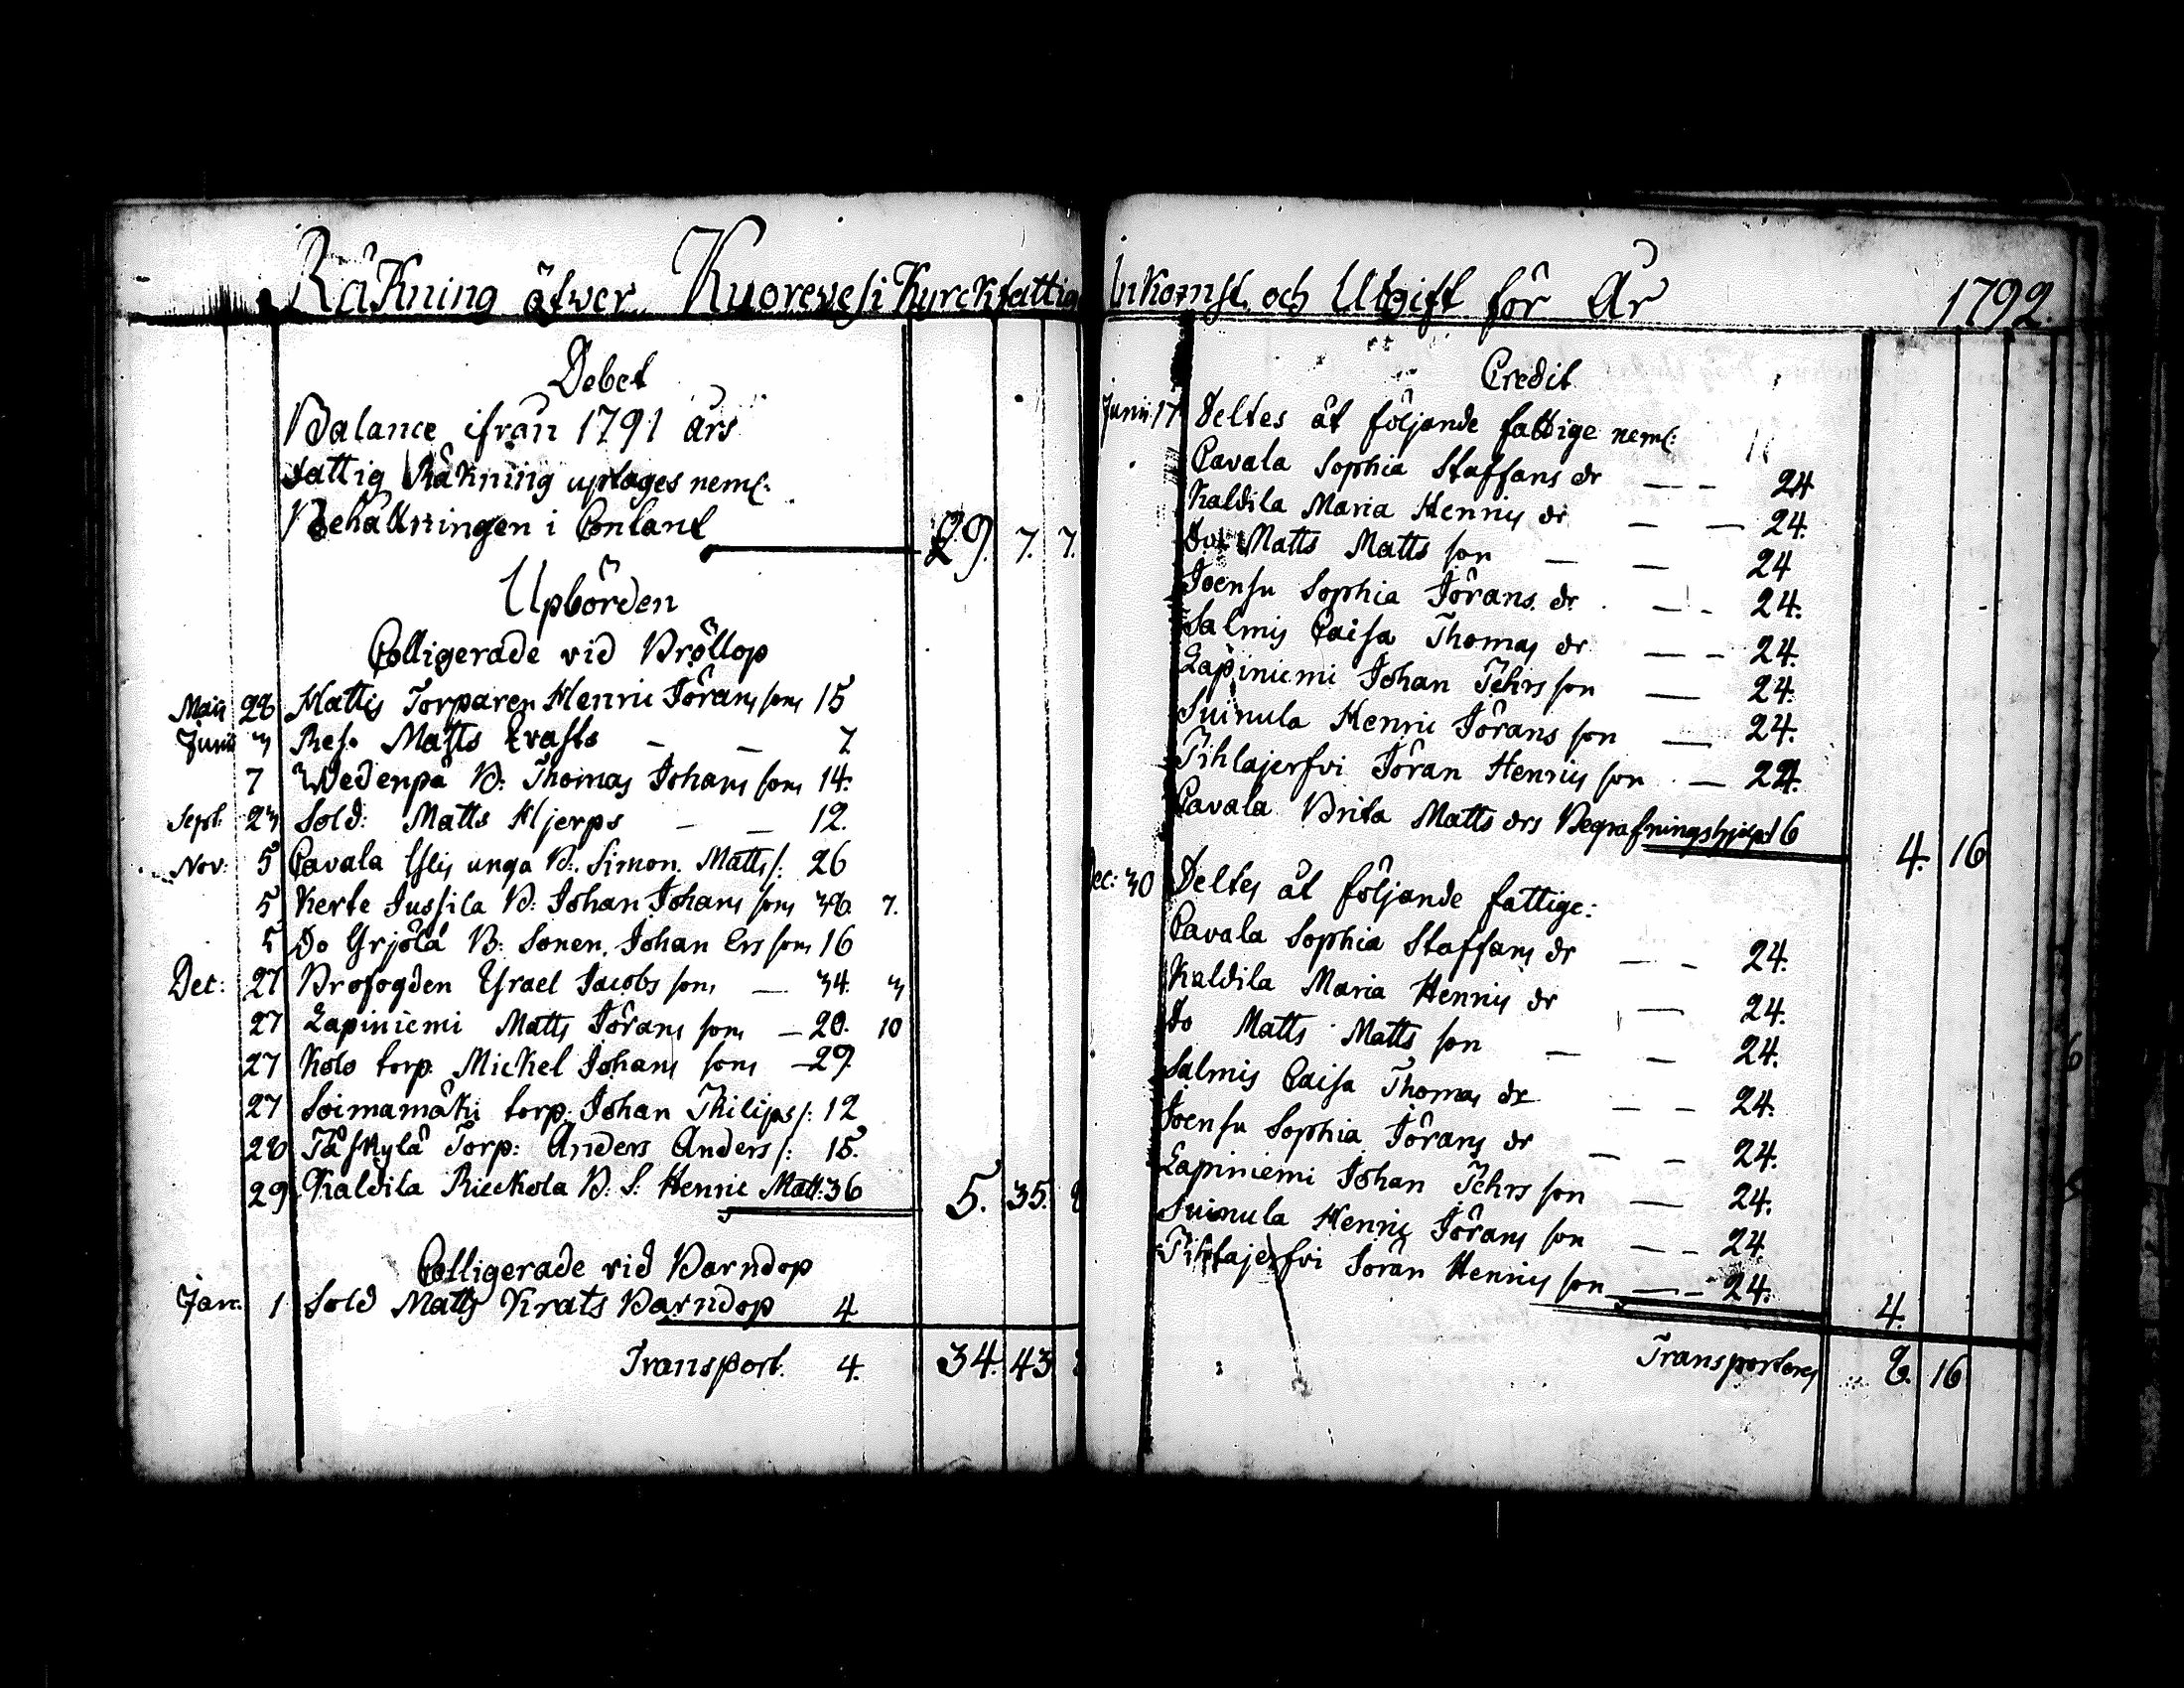 Räkning öfwer Kuorevesi Kyrckfattig Inkomst och Utgift för År 1792.
Debet
Balance ifrån 1791 års
Fattig Räkning uptages neml:
Behållningen i Contant 29. 7. 7.
Upbörden
Colligerade vid Bröllop
Maii 28 Mattis Torparen Henric Jörans sons 15
Junii 3 Res. Matts Evasts — — 7
7 Wedenpä B: Thomas Johans sons 14.
Sept: 23 Sold: Matts Hjerps — — 12.
Nov: 5 Cavala Ylis unga B: Simon Matts s: 26
5 Kerte Jussila B: Johan Johans sons 38. 7.
5 Do Yrjölä B: Sonen Johan Ers sons 16
Dec: 27 Brofogden Ysrael Jacobs sons — 34. 3
27 Lapiniemi Matts Jörans sons — 20. 10
27 Kolo torp. Mickel Johans sons — 29.
27 Soimamäki torp. Johan Philips s: 12
28 Täskylä Torp: Anders Anders s: 15.
29 Kaldila Rieckola B. S. Henric Matt: 36 5. 35. 8
Colligerade vid Barndop
Jan: 1 Sold Matts Krats Barndop 4
Transport. 4. 34. 43
Credit
Junii 17 Deltes åt följande fattige neml:
Cavala Sophia Staffans dr — — 24
Kaldila Maria Henrics dr — — 24.
Do Matts Matts son — — 24
Joensu Sophia Jörans dr — — 24.
Salmis Caisa Thomas dr — — 24.
Lapiniemi Johan Pehrs son — 24.
Suinula Henric Jörans son — 24.
Pihlajerfvi Jöran Henrics son — 24.
Cavala Brita Matts drs Begrafningshjelp 16 4. 16
Dec: 30 Deltes åt följande fattige:
Cavala Sophia Staffans dr — — 24.
Kaldila Maria Henrics dr — 24.
Do Matts Matts son — — 24.
Salmis Caisa Thomas dr — — 24.
Joensu Sophia Jörans dr — — 24.
Lapiniemi Johan Pehrs son — 24.
Suinula Henric Jörans son — — 24.
Pihlajerfvi Jöran Henrics son — — 24. 4.
Transporteres 8. 16